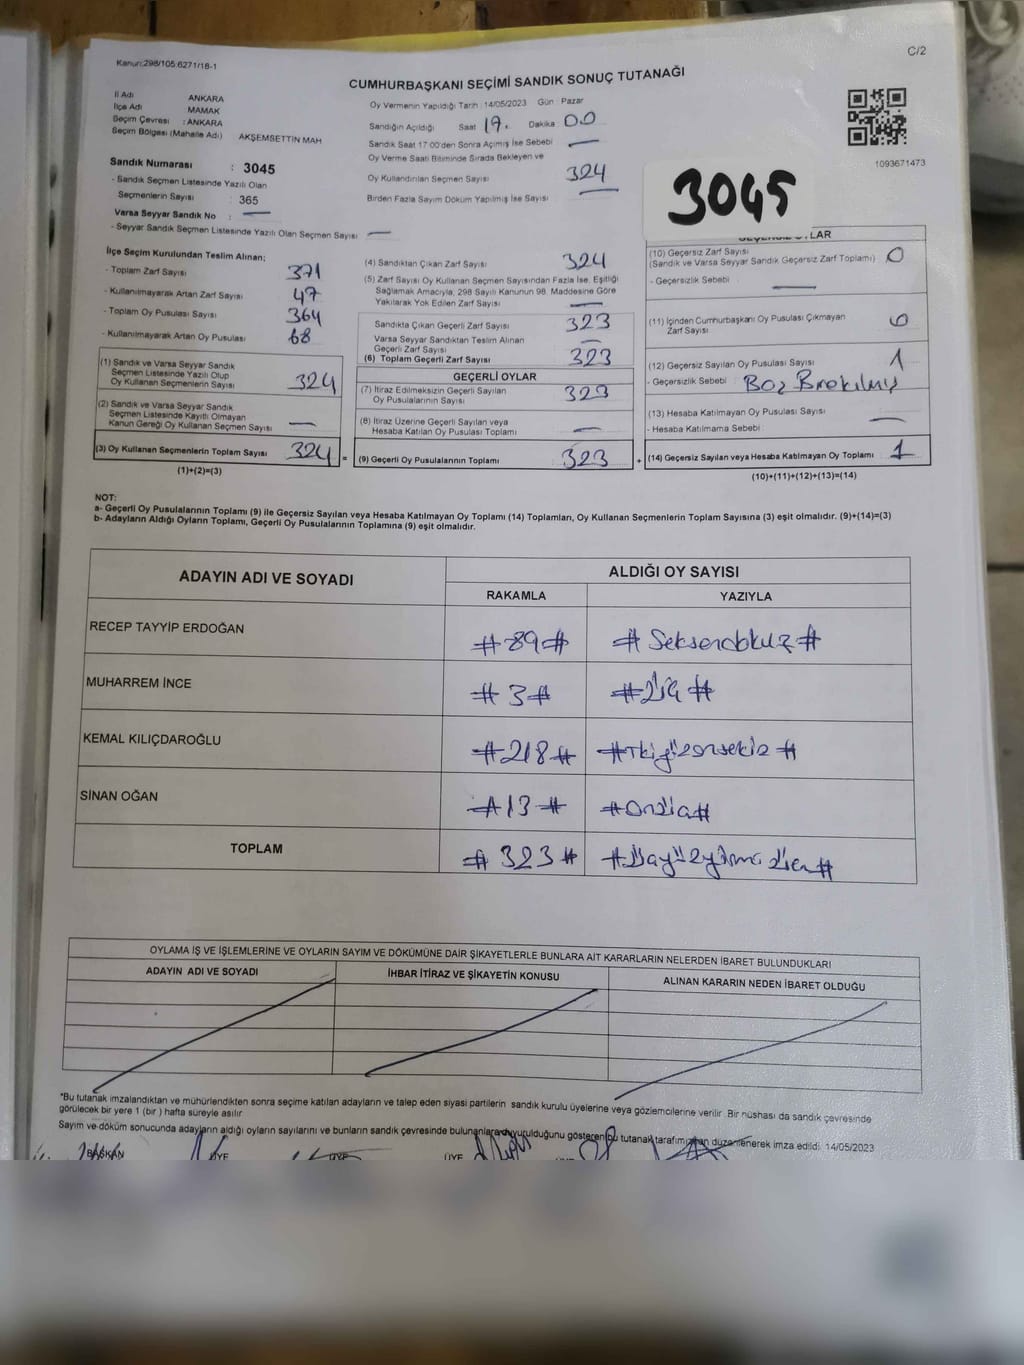 Kanun:298/105.6271/18-1
C/2
CUMHURBAŞKANI SEÇİMİ SANDIK SONUÇ TUTANAĞI
İl Adı ANKARA
İlçe Adı MAMAK
Seçim Çevresi : ANKARA
Seçim Bölgesi (Mahalle Adı) AKŞEMSETTİN MAH
Sandık Numarası : 3045
- Sandık Seçmen Listesinde Yazılı Olan
Seçmenlerin Sayısı : 365
Varsa Seyyar Sandık No : —
- Seyyar Sandık Seçmen Listesinde Yazılı Olan Seçmen Sayısı —
Oy Vermenin Yapıldığı Tarih : 14/05/2023 Gün Pazar
Sandığın Açıldığı Saat 17. Dakika 00
Sandık Saat 17:00'den Sonra Açılmış İse Sebebi —
Oy Verme Saati Bitiminde Sırada Bekleyen ve
Oy Kullandırılan Seçmen Sayısı 324
Birden Fazla Sayım Döküm Yapılmış İse Sayısı —
1093671473
3045
İlçe Seçim Kurulundan Teslim Alınan;
- Toplam Zarf Sayısı 371
- Kullanılmayarak Artan Zarf Sayısı 47
- Toplam Oy Pusulası Sayısı 364
- Kullanılmayarak Artan Oy Pusulası 68
(1) Sandık ve Varsa Seyyar Sandık
Seçmen Listesinde Yazılı Olup
Oy Kullanan Seçmenlerin Sayısı 324
(2) Sandık ve Varsa Seyyar Sandık
Seçmen Listesinde Kayıtlı Olmayan
Kanun Gereği Oy Kullanan Seçmen Sayısı —
(3) Oy Kullanan Seçmenlerin Toplam Sayısı 324 =
(1)+(2)=(3)
(4) Sandıktan Çıkan Zarf Sayısı 324
(5) Zarf Sayısı Oy Kullanan Seçmen Sayısından Fazla İse, Eşitliği
Sağlamak Amacıyla, 298 Sayılı Kanunun 98. Maddesine Göre
Yakılarak Yok Edilen Zarf Sayısı —
Sandıkta Çıkan Geçerli Zarf Sayısı 323
Varsa Seyyar Sandıktan Teslim Alınan
Geçerli Zarf Sayısı
(6) Toplam Geçerli Zarf Sayısı 323
GEÇERLİ OYLAR
(7) İtiraz Edilmeksizin Geçerli Sayılan
Oy Pusulalarının Sayısı 323
(8) İtiraz Üzerine Geçerli Sayılan veya
Hesaba Katılan Oy Pusulası Toplamı —
(9) Geçerli Oy Pusulalarının Toplamı 323 +
OYLAR
(10) Geçersiz Zarf Sayısı
(Sandık ve Varsa Seyyar Sandık Geçersiz Zarf Toplamı) 0
- Geçersizlik Sebebi —
(11) İçinden Cumhurbaşkanı Oy Pusulası Çıkmayan
Zarf Sayısı 0
(12) Geçersiz Sayılan Oy Pusulası Sayısı 1
- Geçersizlik Sebebi : Boş
(13) Hesaba Katılmayan Oy Pusulası Sayısı
- Hesaba Katılmama Sebebi —
(14) Geçersiz Sayılan veya Hesaba Katılmayan Oy Toplamı 1
(10)+(11)+(12)+(13)=(14)
NOT:
a- Geçerli Oy Pusulalarının Toplamı (9) ile Geçersiz Sayılan veya Hesaba Katılmayan Oy Toplamı (14) Toplamları, Oy Kullanan Seçmenlerin Toplam Sayısına (3) eşit olmalıdır. (9)+(14)=(3)
b- Adayların Aldığı Oyların Toplamı, Geçerli Oy Pusulalarının Toplamına (9) eşit olmalıdır.
ADAYIN ADI VE SOYADI ALDIĞI OY SAYISI
RAKAMLA YAZIYLA
RECEP TAYYİP ERDOĞAN #89# #Seksendokuz#
MUHARREM İNCE #3# #Üç#
KEMAL KILIÇDAROĞLU #218# #İkiyüzonsekiz#
SİNAN OĞAN #13# #Onüç#
TOPLAM #323# #Üçyüzyirmiüç#
OYLAMA İŞ VE İŞLEMLERİNE VE OYLARIN SAYIM VE DÖKÜMÜNE DAİR ŞİKAYETLERLE BUNLARA AİT KARARLARIN NELERDEN İBARET BULUNDUKLARI
ADAYIN ADI VE SOYADI İHBAR İTİRAZ VE ŞİKAYETİN KONUSU ALINAN KARARIN NEDEN İBARET OLDUĞU
*Bu tutanak imzalandıktan ve mühürlendikten sonra seçime katılan adayların ve talep eden siyasi partilerin sandık kurulu üyelerine veya gözlemcilerine verilir. Bir nüshası da sandık çevresinde
görülecek bir yere 1 (bir) hafta süreyle asılır
Sayım ve döküm sonucunda adayların aldığı oyların sayılarını ve bunların sandık çevresinde bulunanlara duyurulduğunu gösteren bu tutanak tarafımızdan düzenlenerek imza edildi. 14/05/2023
BAŞKAN ÜYE ÜYE ÜYE